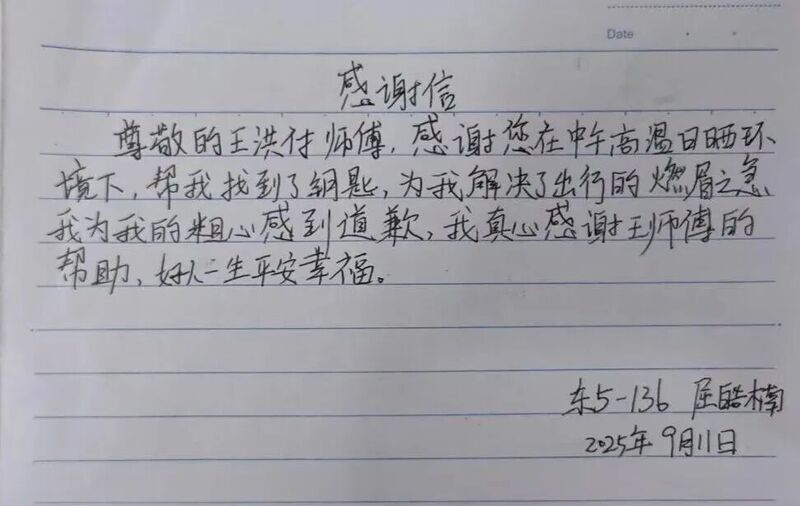 Date
感谢信
尊敬的王洪付师傅，感谢您在中午高温日晒环
境下，帮我找到了钥匙，为我解决了出行的燃眉之急
我为我的粗心感到道歉，我真心感谢王师傅的
帮助、好人一生平安幸福。
东5-136 屈皓楠
2025年9月11日